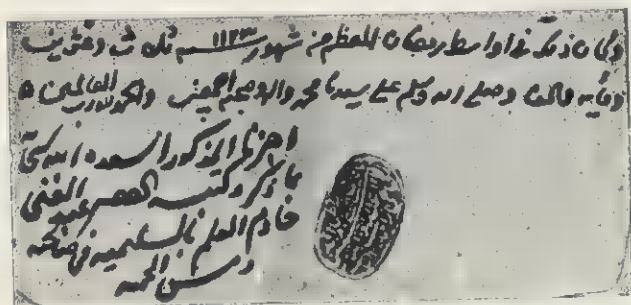 وكان ذلك في اواسط رمضان المعظم من شهور سنة ١١٢٣ ثلاث وعشرين
ومايه والف وصلى الله وسلم على سيدنا محمد واله وصحبه اجمعين والحمد لله رب العالمين
اجزنا المذكور اسعده الله تعالى
بما ذكر وكتبه الفقير عبد الغني
خادم العلم بالسليمية في صالحية
دمشق المحمية